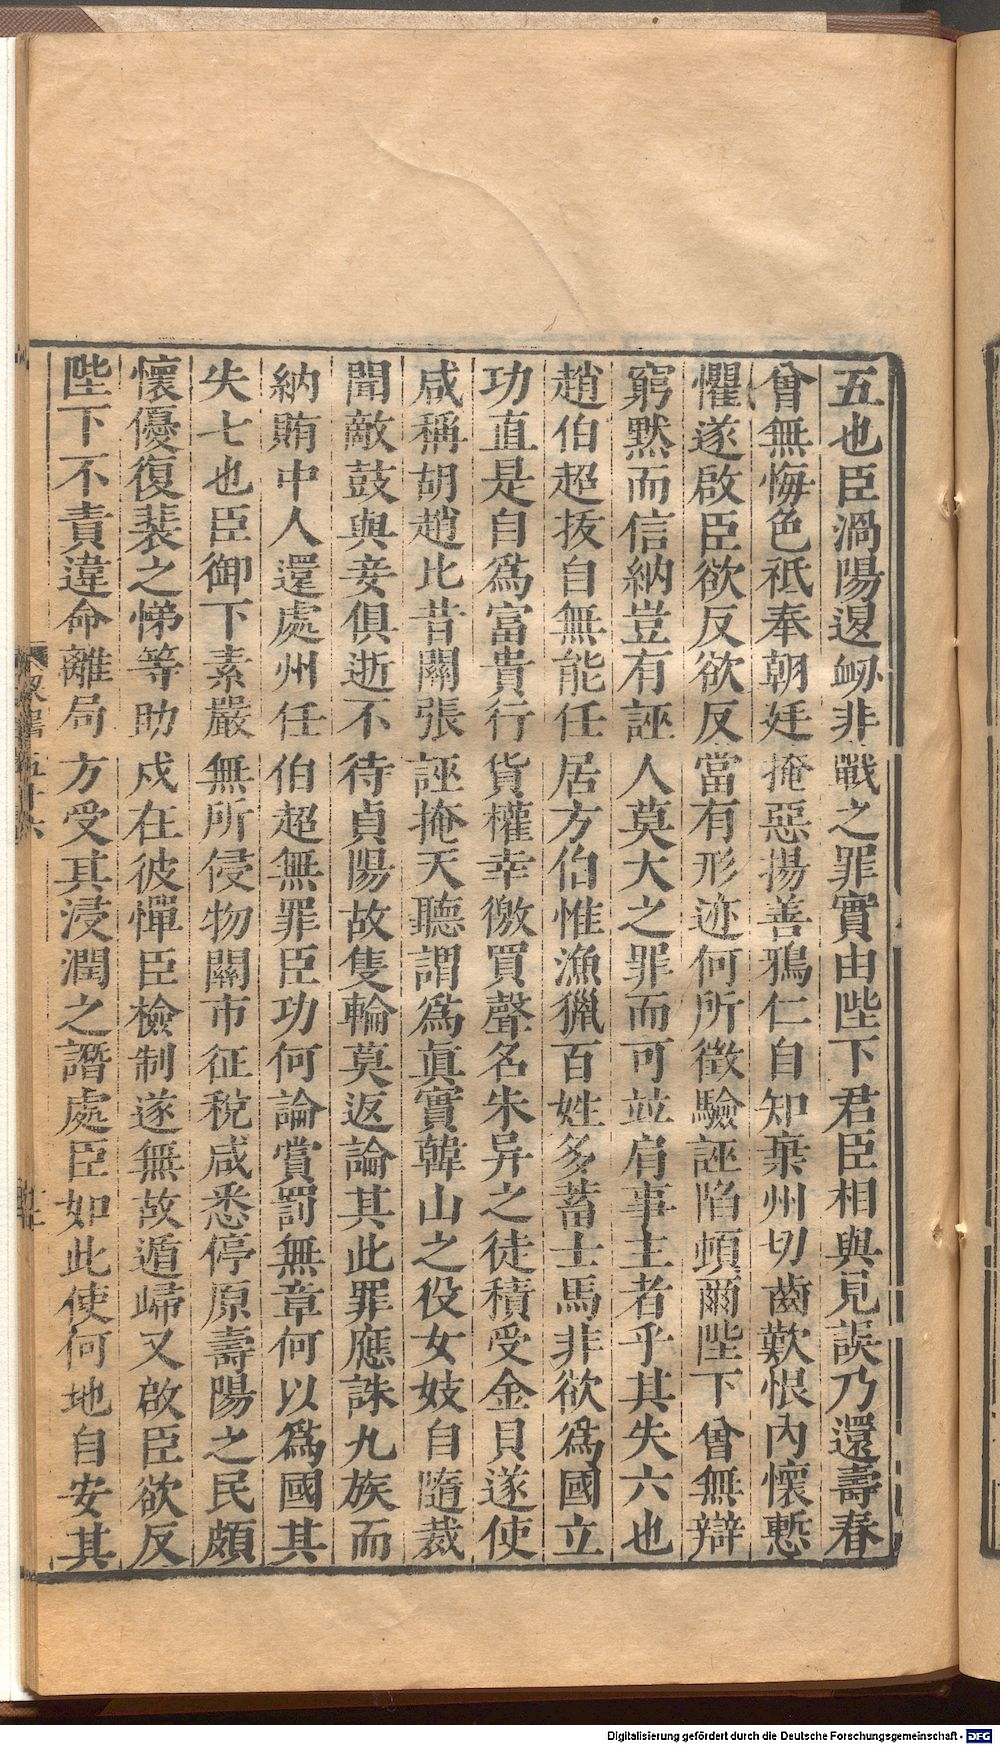 五也臣渦陽退衂非戰之罪實由陛下君臣相與見誤乃還壽春
曾無悔色祗奉朝廷掩惡揚善鴉仁自知棄州切齒歎恨內懷慙
懼遂啟臣欲反欲反當有形迹何所徵驗誣陷頓爾陛下曾無辯
窮默而信納豈有誣人莫大之罪而可並肩事主者乎其失六也
趙伯超拔自無能任居方伯惟漁獵百姓多蓄士馬非欲爲國立
功直是自爲富貴行貨權幸徼買聲名朱异之徒積受金貝遂使
咸稱胡趙比昔關張誣掩天聽謂爲眞實韓山之役女妓自隨裁
聞敵鼓與妾俱逝不待貞陽故隻輪莫返論其此罪應誅九族而
納賄中人還處州任伯超無罪臣功何論賞罰無章何以爲國其
失七也臣御下素嚴無所侵物關市征稅咸悉停原壽陽之民頗
懷優復裴之悌等助戍在彼憚臣檢制遂無故遁歸又啟臣欲反
陛下不責違命離局方受其浸潤之譖處臣如此使何地自安其
Digitalisierung gefördert durch die Deutsche Forschungsgemeinschaft - DFG